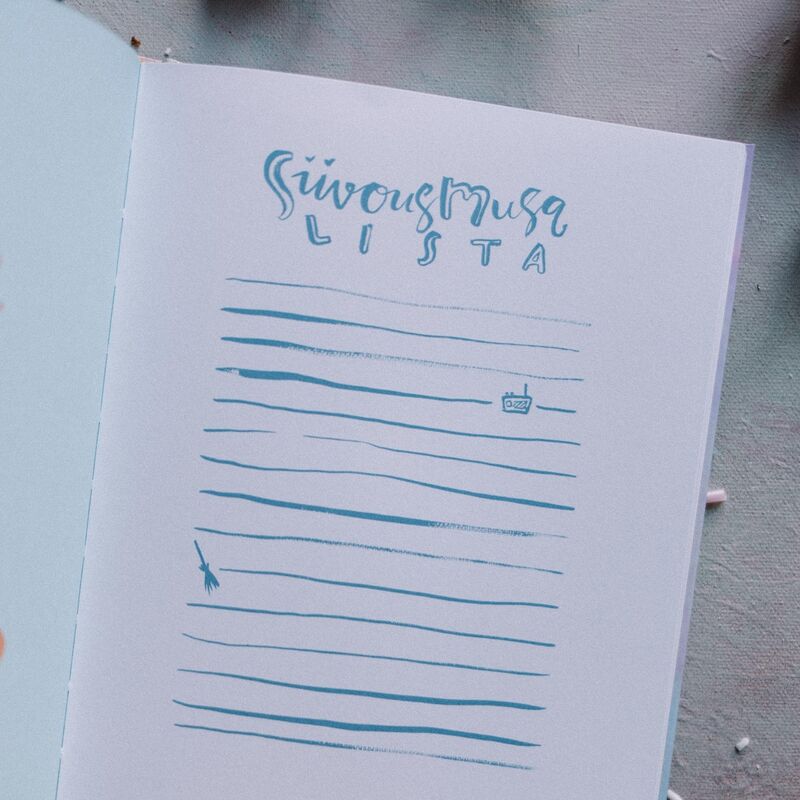 Siivousmusa
LISTA